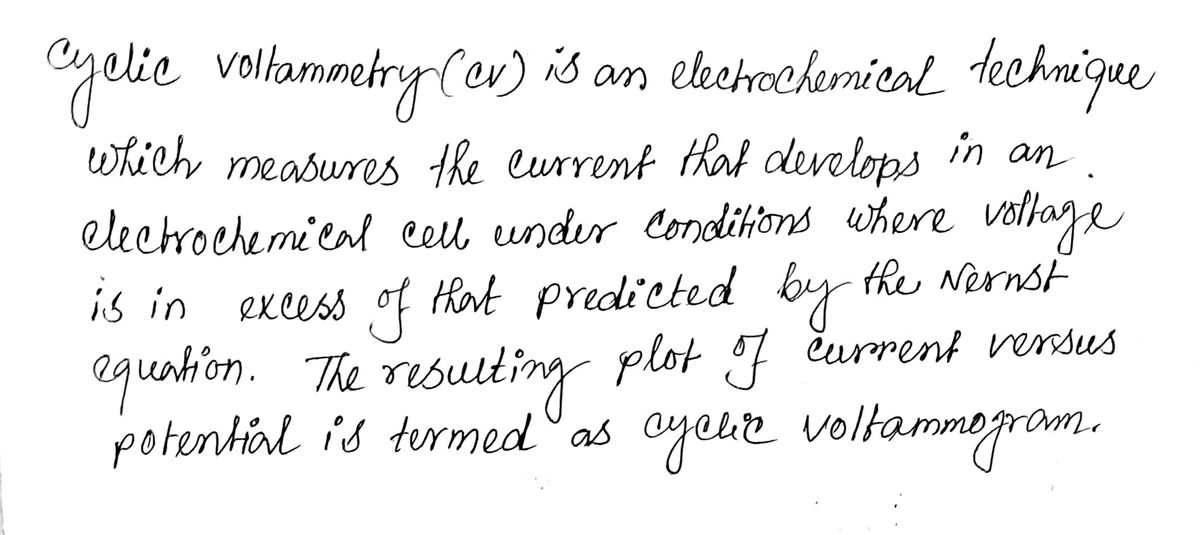 Cyclic voltammetry (CV) is an electrochemical technique
which measures the current that develops in an
electrochemical cell under conditions where voltage
is in excess of that predicted by the Nernst
equation. The resulting plot of current versus
potential is termed as cyclic voltammogram.